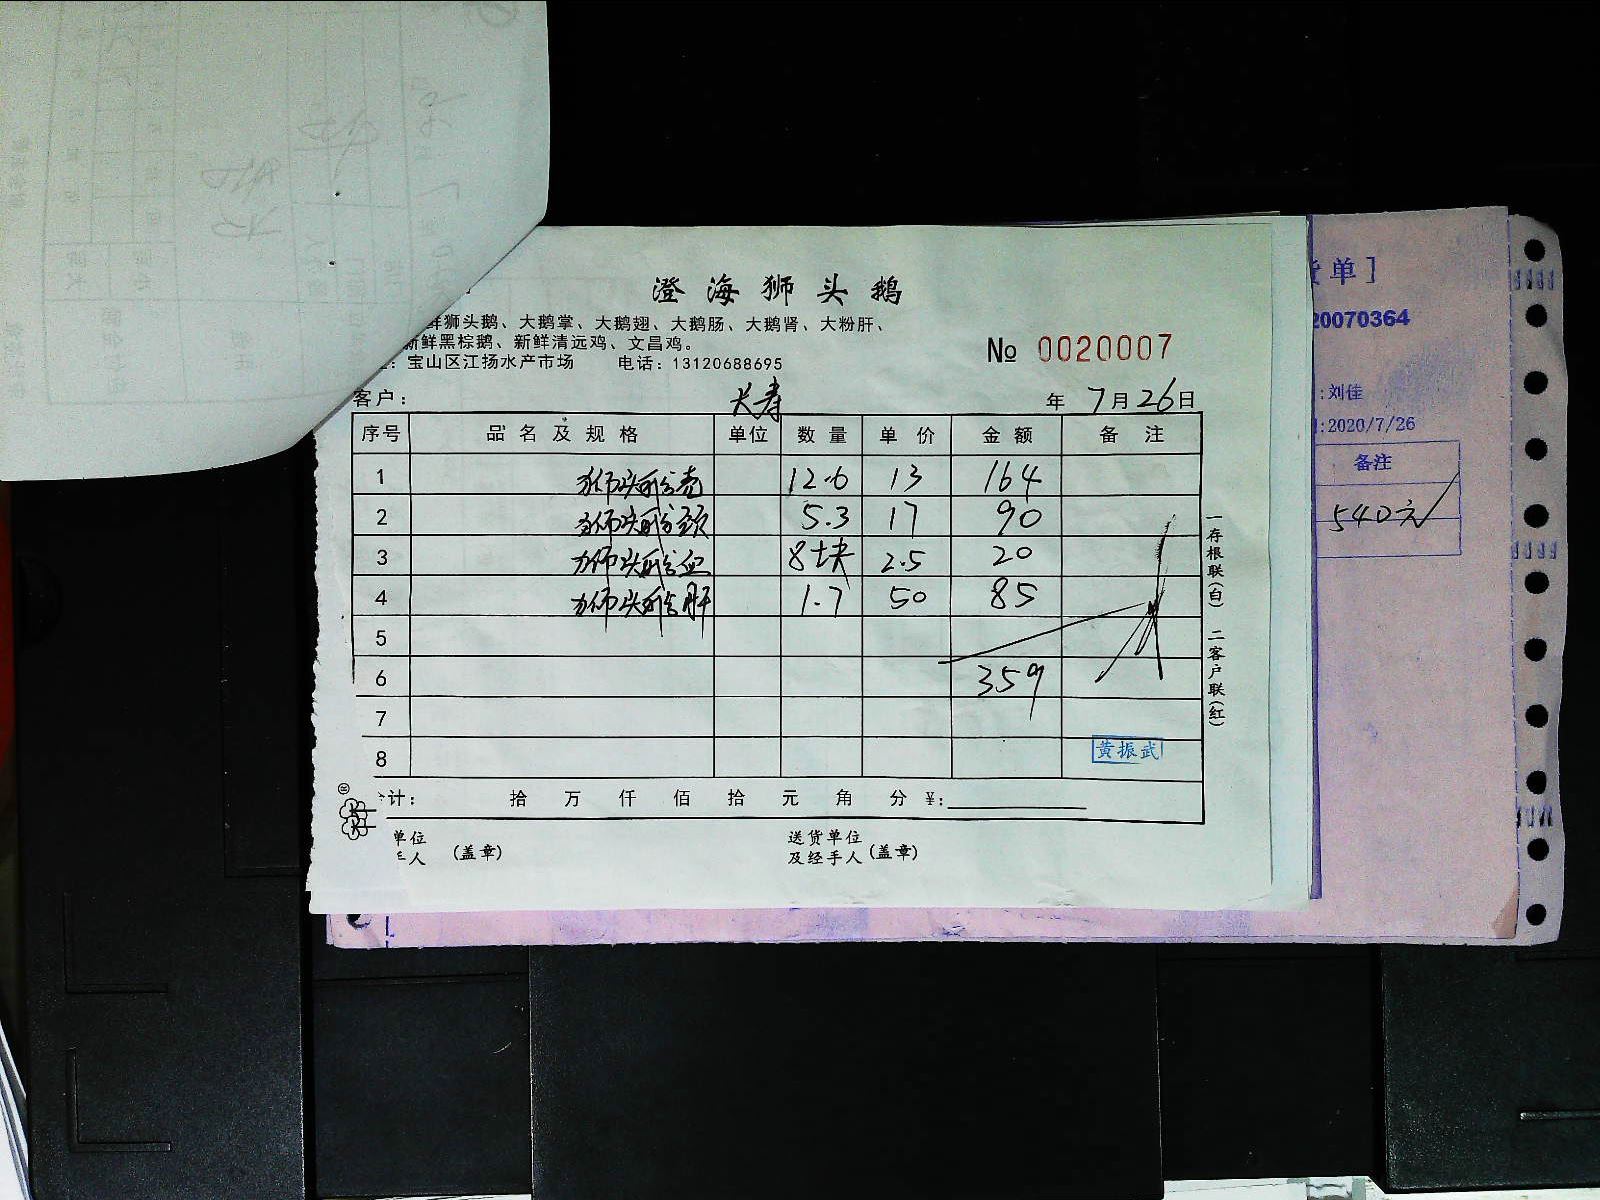 澄海狮头鹅
鲜狮头鹅、大鹅掌、大鹅翅、大鹅肠、大鹅肾、大粉肝、
新鲜黑棕鹅、新鲜清远鸡、文昌鸡。
：宝山区江扬水产市场 电话：13120688695
№ 0020007
客户： 长寿 年 7月26日
序号 品名及规格 单位 数量 单价 金额 备注
1 狮头 12.6 13 164
2 狮头 5.3 17 90
3 狮头 血 8块 2.5 20
4 狮头 肝 1.7 50 85
5
6 359
7
8
黄振武
计： 拾 万 仟 佰 拾 元 角 分 ¥：
单位
人 （盖章）
送货单位
及经手人（盖章）
一存根联（白） 二客户联（红）
货单]
20070364
:刘佳
:2020/7/26
备注
540元